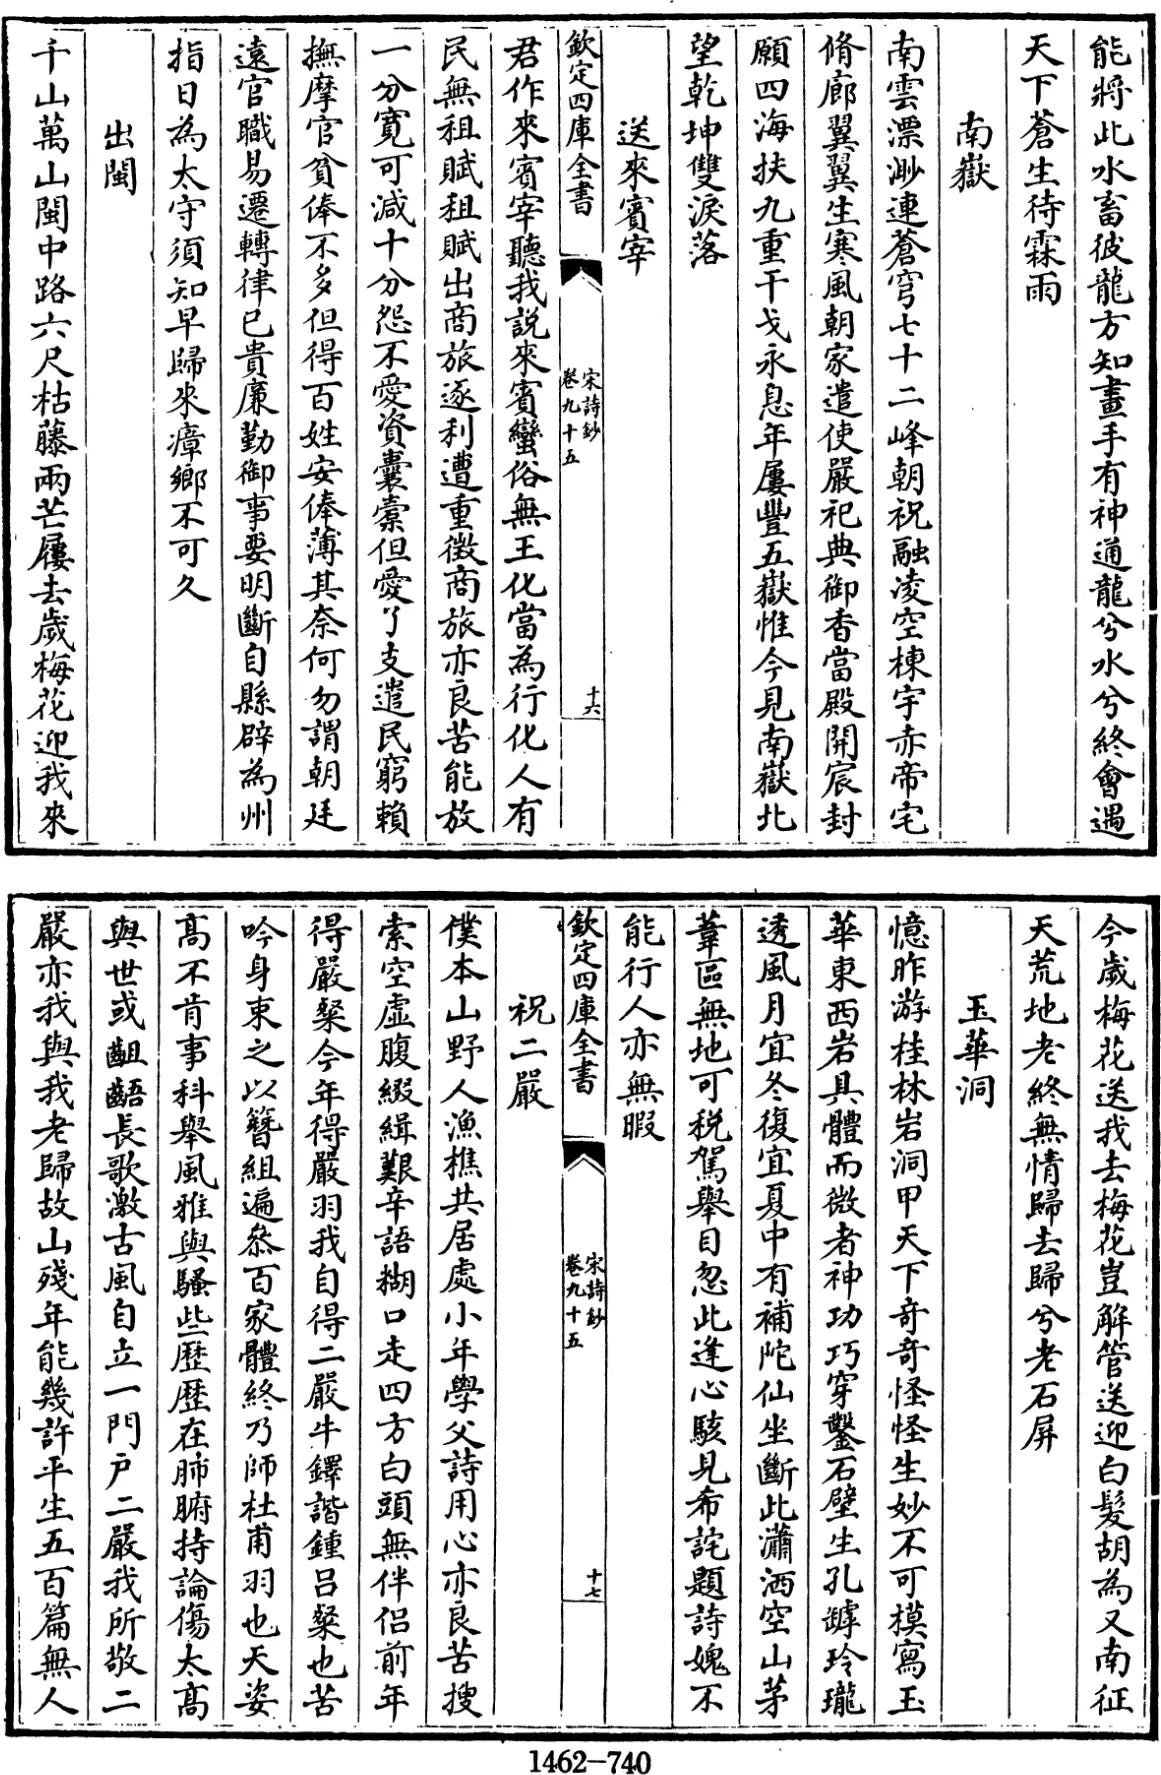 能將此水畜彼龍方知畫手有神通龍兮水兮終會遇
天下蒼生待霖雨
南嶽
南雲漂渺連蒼穹七十二峰朝祝融凌空棟宇赤帝宅
脩廊翼翼生寒風朝家遣使嚴祀典御香當殿開宸封
願四海扶九重干戈永息年屢豐五嶽惟今見南嶽北
望乾坤雙淚落
送來賓宰
欽定四庫全書
宋詩鈔
卷九十五
十六
君作來賓宰聽我說來賓蠻俗無王化當為行化人有
民無租賦租賦出商旅逐利遭重徵商旅亦良苦能放
一分寬可減十分怨不愛資囊槖但愛了支遣民窮賴
撫摩官貧俸不多但得百姓安俸薄其奈何勿謂朝廷
遠官職易遷轉律已貴廉勤御事要明斷自縣辟為州
指日為太守須知早歸來瘴鄉不可久
出閩
千山萬山閩中路六尺枯藤兩芒屨去歲梅花迎我來
今歲梅花送我去梅花豈解管送迎白髮胡為又南征
天荒地老終無情歸去歸兮老石屏
玉華洞
憶昨游桂林岩洞甲天下奇奇怪怪生妙不可模寫玉
華東西岩具體而微者神功巧穿鑿石壁生孔罅玲瓏
透風月宜冬復宜夏中有補陀仙坐斷此瀟洒空山茅
葦區無地可税駕舉目忽此逢心駭見希詫題詩媿不
能行人亦無暇
欽定四庫全書
宋詩鈔
卷九十五
十七
祝二嚴
僕本山野人漁樵共居處小年學父詩用心亦良苦搜
索空虛腹綴緝艱辛語糊口走四方白頭無伴侣前年
得嚴粲今年得嚴羽我自得二嚴牛鐸諧鍾呂粲也苦
吟身束之以簪組遍叅百家體終乃師杜甫羽也天姿
高不肯事科舉風雅與騷些歷歷在肺腑持論傷太高
與世或齟齬長歌激古風自立一門户二嚴我所敬二
嚴亦我與我老歸故山殘年能幾許平生五百篇無人
1462-740